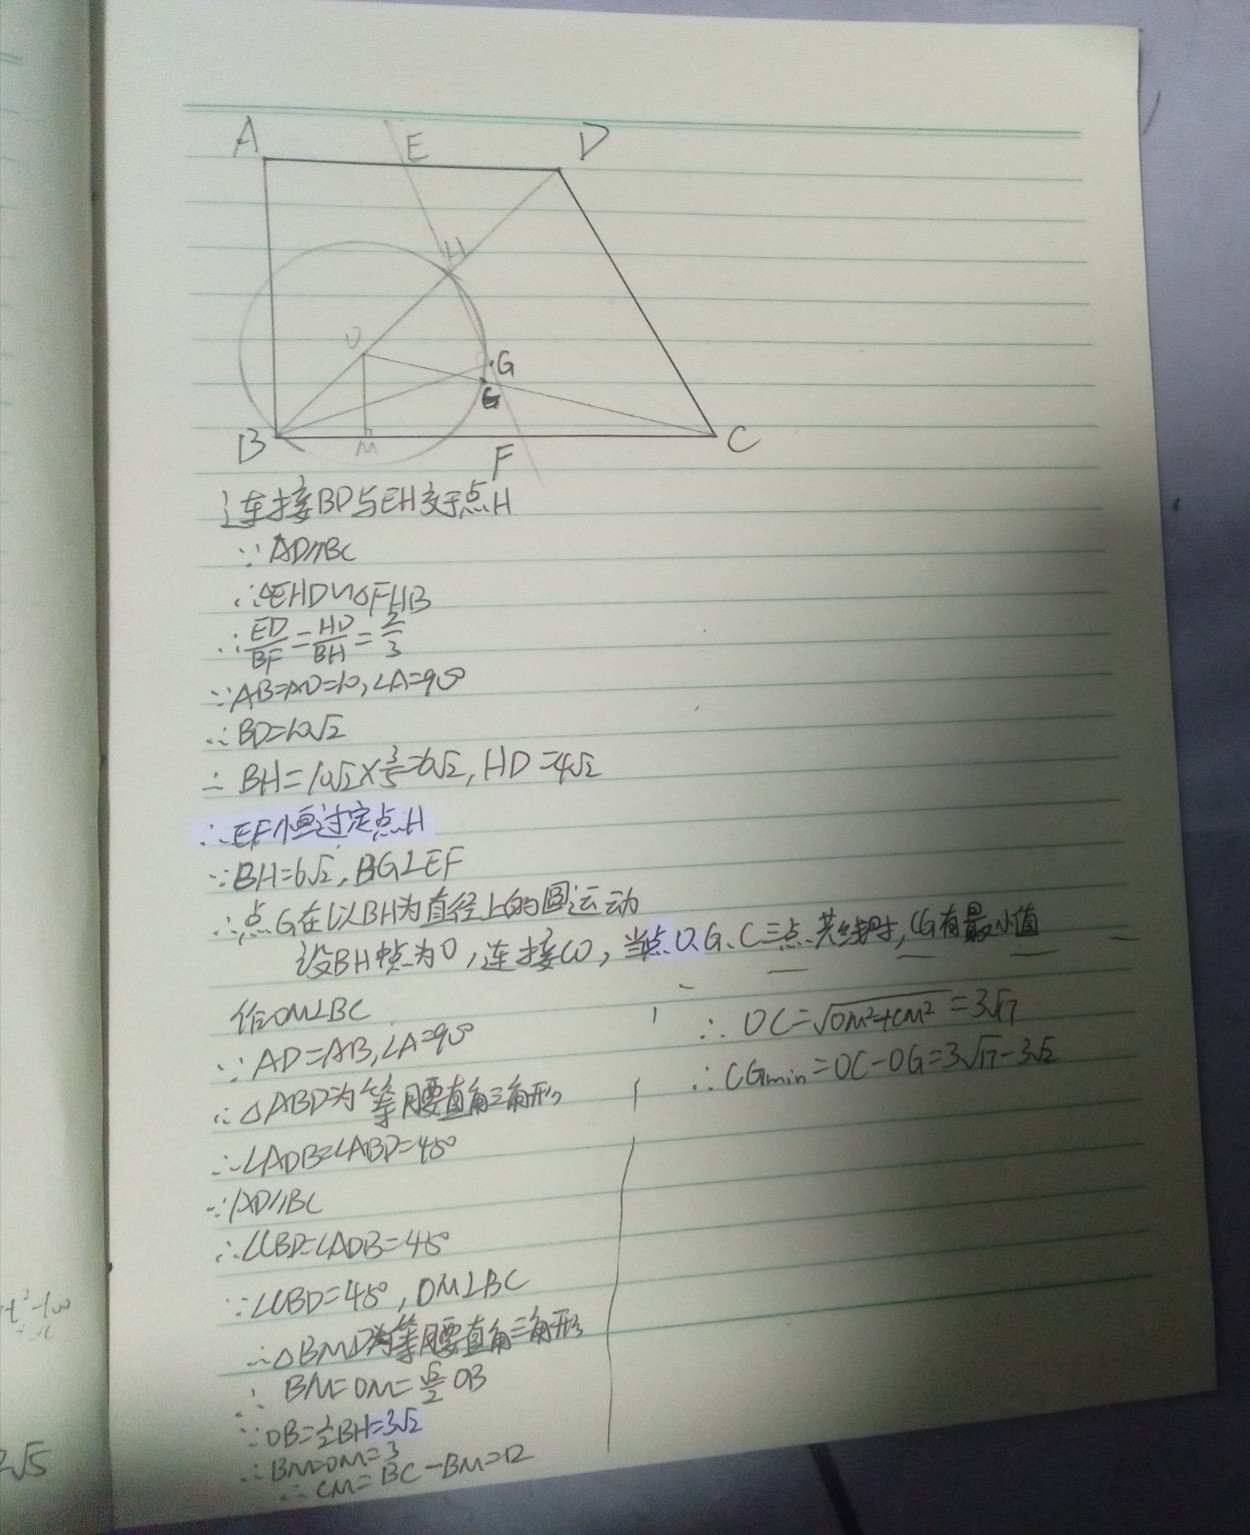 A E D
H
O
G
G
B M F C
连接BD与EH交于点H
∵AD∥BC
∴△EHD∽△FHB
∴ED/BF=HD/BH=2/3
∵AB=AD=10,∠A=90°
∴BD=10√2
∴BH=10√2×3/5=6√2,HD=4√2
∴EF恒过定点H
∵BH=6√2,BG⊥EF
∴点G在以BH为直径上的圆运动
设BH中点为O,连接CO,当点O、G、C三点共线时,CG有最小值
作OM⊥BC
∵AD=AB,∠A=90°
∴△ABD为等腰直角三角形
∴∠ADB=∠ABD=45°
∵AD∥BC
∴∠CBD=∠ADB=45°
∵∠CBD=45°,OM⊥BC
∴△BMO为等腰直角三角形
∴BM=OM=√2/2OB
∵OB=1/2BH=3√2
∴BM=OM=3
∴CM=BC-BM=12
∴OC=√(OM²+CM²)=3√17
∴CGmin=OC-OG=3√17-3√2
2√5